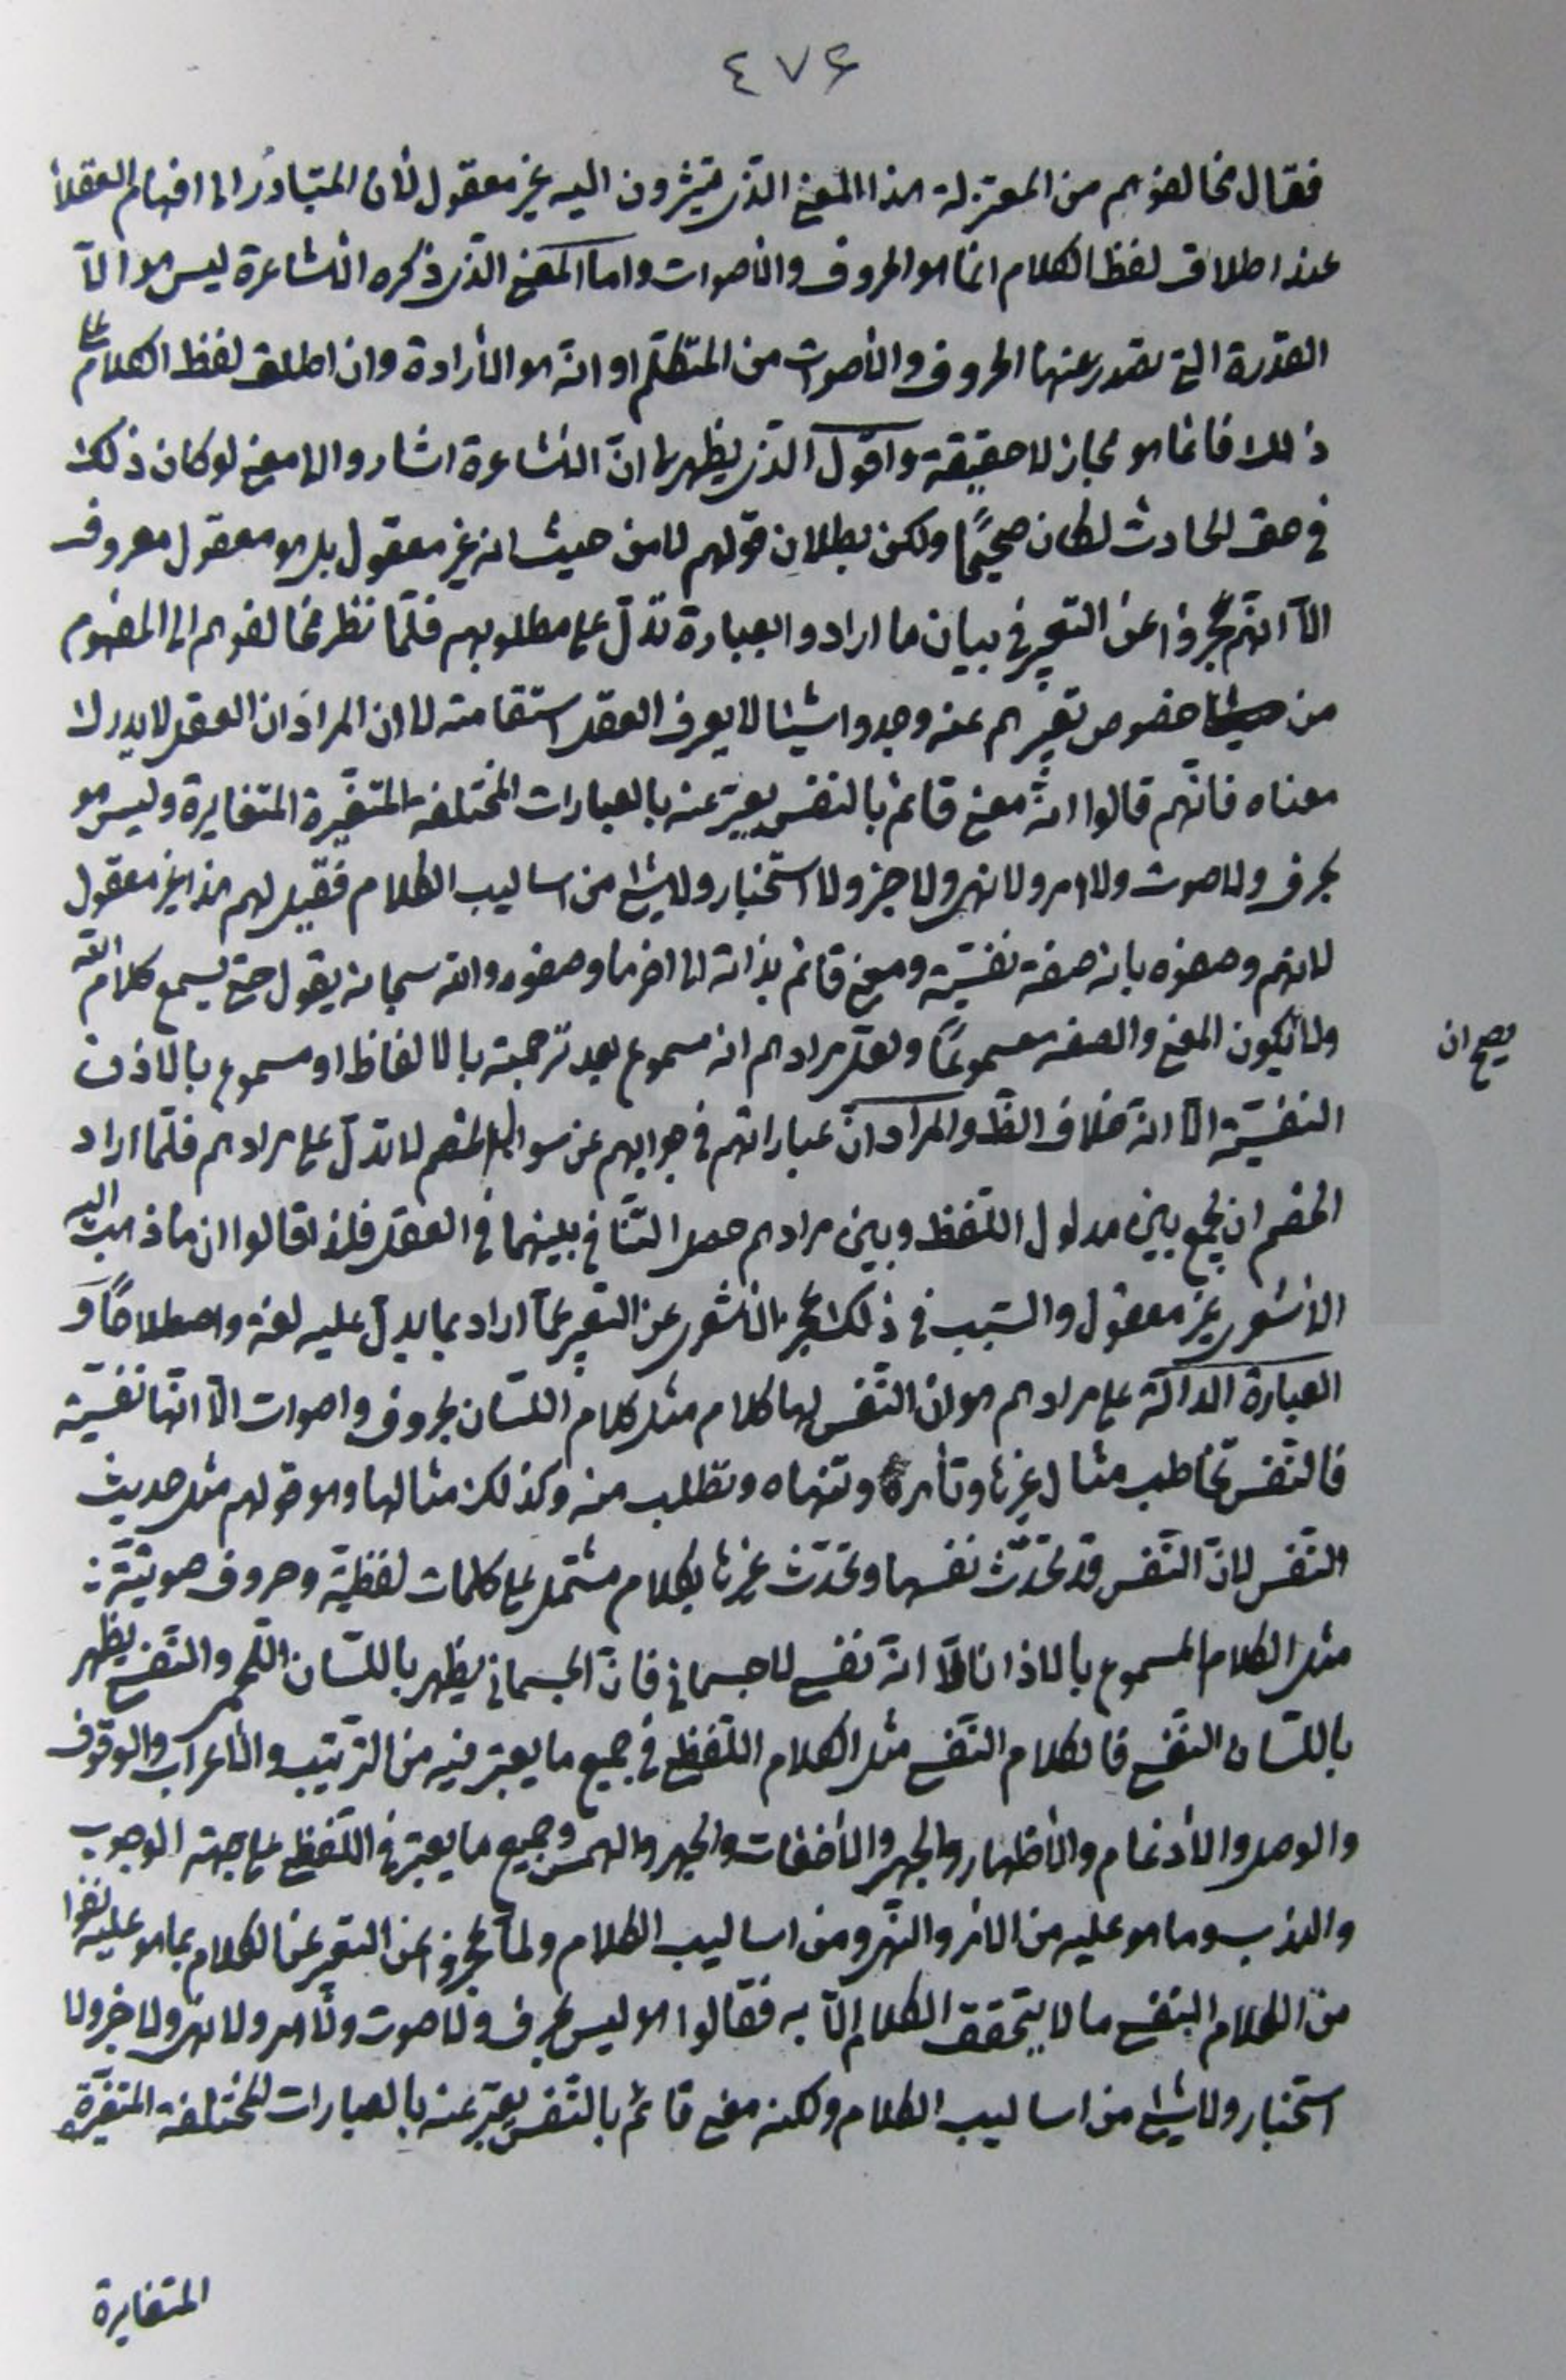 ٤٧٦
فقال مخالفوهم من المعتزلة هذا المعنى الذى تشيرون اليه غير معقول لأن المتبادر الى افهام العقلاء
عند اطلاق لفظ الكلام انما هو الحروف والأصوات واما المعنى الذى ذكره الأشاعرة ليس هو الّا
القدرة التى تصدر عنها الحروف والأصوات من المتكلم او انّه هو الأرادة وان اطلق لفظ الكلام على
ذلك فانما هو مجاز لا حقيقة واقول الذى يظهر لى انّ الأشاعرة اشاروا الى معنى لو كان ذلك
فى حق الحادث لكان صحيحًا ولكن بطلان قولهم لا من حيث انه غير معقول بل هو معقول معروف
الّا انهم عجزوا عن التعبير فى بيان ما ارادوا بعبارة تدلّ على مطلوبهم فلمّا نظر مخالفوهم الى المفهوم
من خصوص تعبيرهم عنه وجدوا شيئا لا يعرف العقل استقامته لا ان المراد ان العقل لا يدرك
معناه فانّهم قالوا انه معنى قائم بالنفس يعبّر عنه بالعبارات المختلفة المتغيّرة المتغايرة وليس هو
بحرف ولا صوت ولا امر ولا نهى ولا خبر ولا استخبار ولا شئ من اساليب الكلام فقيل لهم هذا غير معقول
لانهم وصفوه بانه صفة نفسيّة ومعنى قائم بذاته الى اخر ما وصفوه والله سبحانه يقول حتى يسمع كلام الله
ولا يكون المعنى والصفة مسموعًا ولعل مرادهم انه مسموع بعد ترجمته بالالفاظ او مسموع بالاذن
يصح ان
النفسيّة الّا انّه خلاف الظ والمراد انّ عباراتهم فى جوابهم عن سوال الخصم لا تدلّ على مرادهم فلمّا اراد
الخصم ان يجمع بين مدلول اللّفظ وبين مرادهم حصل التنافى بينهما فى العقل فلذا قالوا ان ما ذهب اليه
الأشعرى غير معقول والسّبب فى ذلك عجز الأشعرى عن التعبير عمّا اراد بما يدلّ عليه لغة واصطلاحًا و
العبارة الدالّة على مرادهم هو ان النّفس لها كلام مثل كلام اللّسان بحروف واصوات الّا انّها نفسيّة
فالنّفس تخاطب مثال غيرها وتأمره وتنهاه وتطلب منه وكذلك مثالها وهو قولهم مثل حديث
النّفس لانّ النّفس قد تحدّث نفسها وتحدّث غيرها بكلام مشتمل على كلمات لفظيّة وحروف صوتيّة:
مثل الكلام المسموع بالاذان الّا انّه نفسى لا جسمانى فانّ الجسمانى يظهر باللّسان اللّحمى والنّفسى يظهر
باللّسان النّفسى فالكلام النّفسى مثل الكلام اللّفظى فى جميع ما يعتبر فيه من الترتيب والأعراب والوقوف
والوصل والأدغام والأظهار والجهر والأخفات والجهر والهمس وجميع ما يعتبر فى اللّفظى على جهة الوجوب
والندب وما هو عليه من الامر والنّهى ومن اساليب الكلام ولمّا عجزوا عن التعبير عن الكلام بما هو عليه نفوا
من الكلام النفسى ما لا يتحقق الكلام الّا به فقالوا هو ليس بحرف ولا صوت ولا امر ولا نهى ولا خبر ولا
استخبار ولا شئ من اساليب الكلام ولكنه معنى قائم بالنّفس يعبّر عنه بالعبارات المختلفة المتغيّرة
المتغايرة